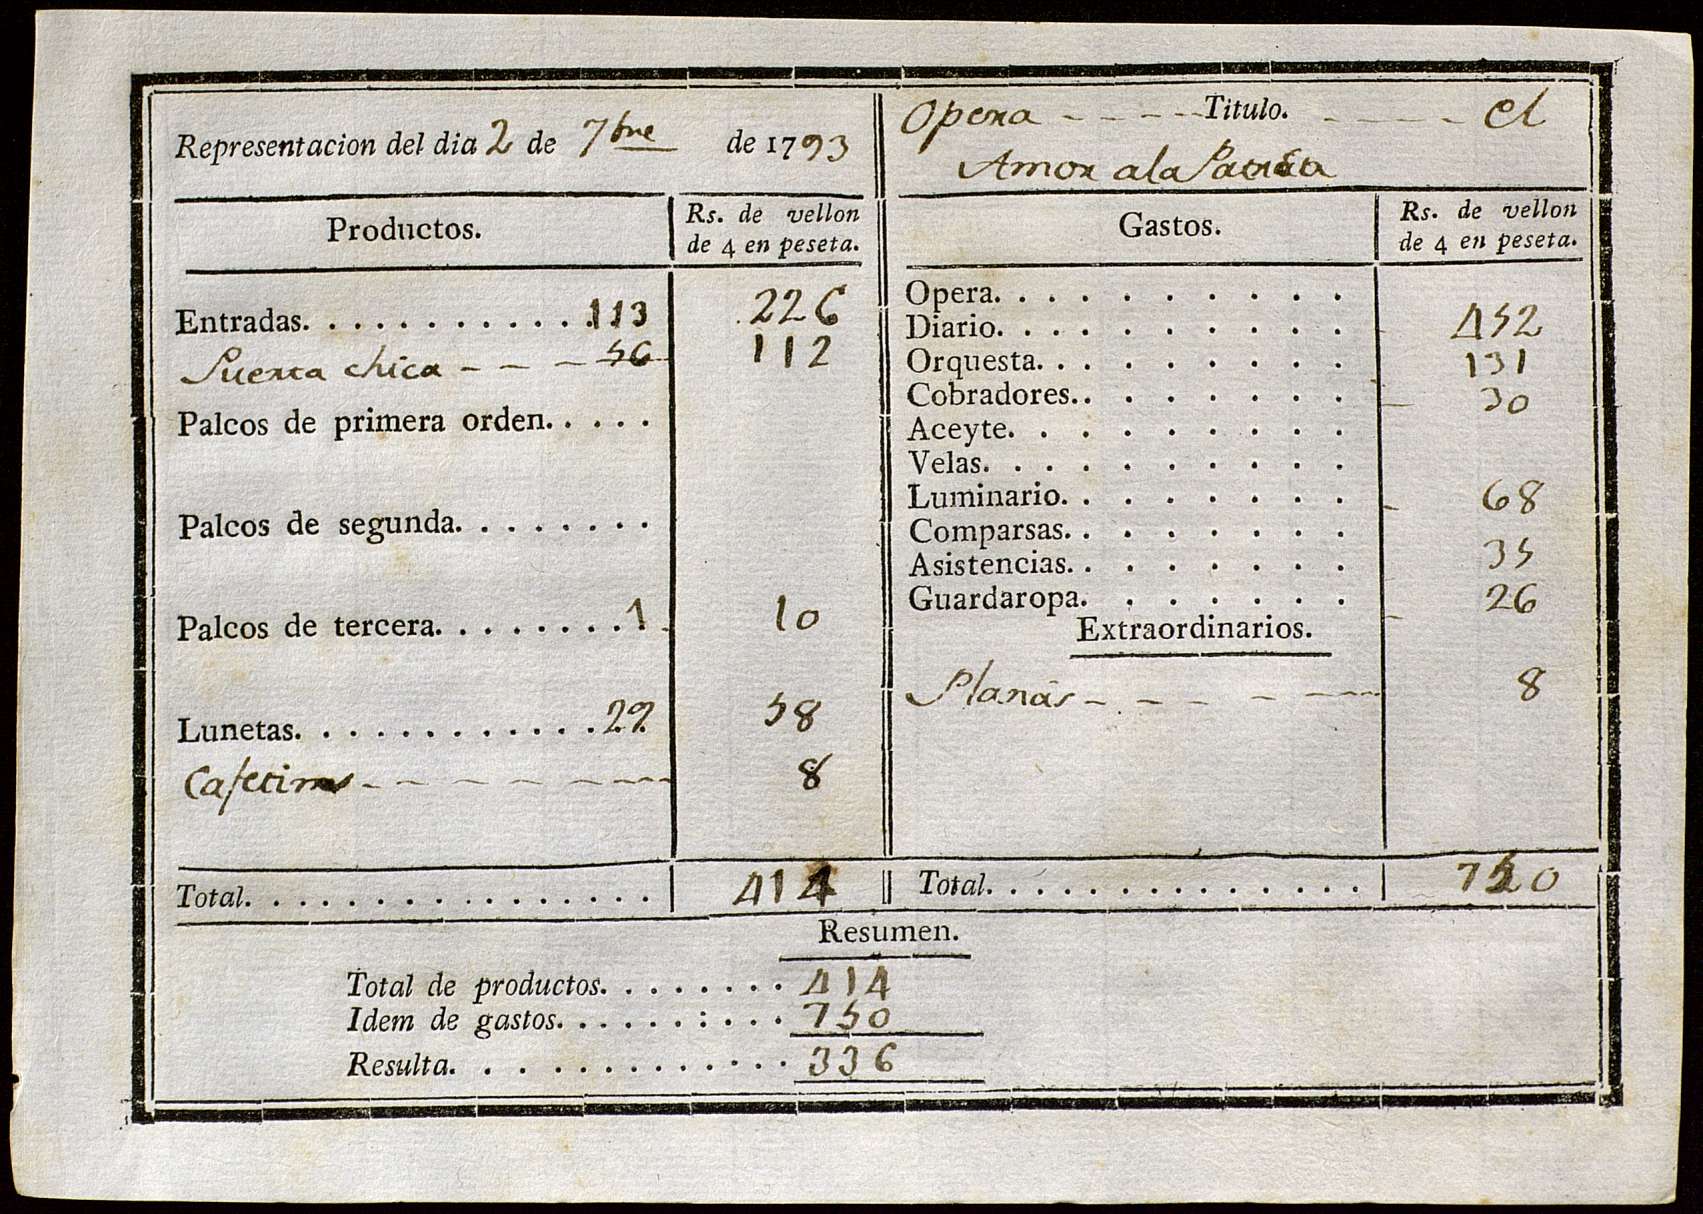 Representacion del dia 2 de 7bre de 1793
Opera - - - - - Titulo. - - - - - el
Amor a la Patria
Productos.
Rs. de vellon
de 4 en peseta.
Entradas. . . . . . . . . . . . 113 226
Puerta chica - - - 56 112
Palcos de primera orden. . . . .
Palcos de segunda. . . . . . . .
Palcos de tercera. . . . . . . . 1 10
Lunetas. . . . . . . . . . . . . 29 58
Cafetines - - - - - - - 8
Total. . . . . . . . . . . . . . . . 414
Gastos.
Rs. de vellon
de 4 en peseta.
Opera. . . . . . . . . .
Diario. . . . . . . . . . 452
Orquesta. . . . . . . . . 131
Cobradores. . . . . . . . 30
Aceyte. . . . . . . . . .
Velas. . . . . . . . . . .
Luminario. . . . . . . . 68
Comparsas. . . . . . . .
Asistencias. . . . . . . . 35
Guardaropa. . . . . . . 26
Extraordinarios.
Planas - - - - - 8
Total. . . . . . . . . . . . . . . 750
Resumen.
Total de productos. . . . . . . . 414
Idem de gastos. . . . . . : . . . 750
Resulta. . . . . . . . . . . . . 336